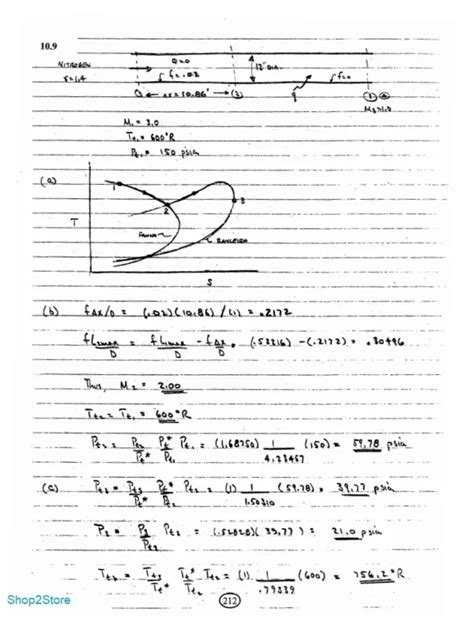 10.9
NITROGEN
γ=1.4
Q=0
f=.02
12" DIA.
f=0
q
① ← Δx=10.86' → ②
③
M₃=1.0
M₁ = 3.0
Tt₁ = 600°R
Pt₁ = 150 psia
(a)
T
1
2
3
FANNO
RAYLEIGH
S
(b) fΔx/D = (.02)(10.86)/(1) = .2172
fL₂max/D = fL₁max/D - fΔx/D = (.52216) - (.2172) = .30496
Thus, M₂ = 2.00
Tt₂ = Tt₁ = 600°R
Pt₂ = Pt₂/Pt* Pt*/Pt₁ Pt₁ = (1.68750) 1/4.23457 (150) = 59.78 psia
(c) Pt₃ = Pt₃/Pt* Pt*/Pt₂ Pt₂ = (1) 1/1.50310 (59.78) = 39.77 psia
P₃ = P₃/Pt₃ Pt₃ = (.52828)(39.77) = 21.0 psia
Tt₃ = Tt₃/Tt* Tt*/Tt₂ Tt₂ = (1) 1/.79339 (600) = 756.2°R
Shop2Store
212